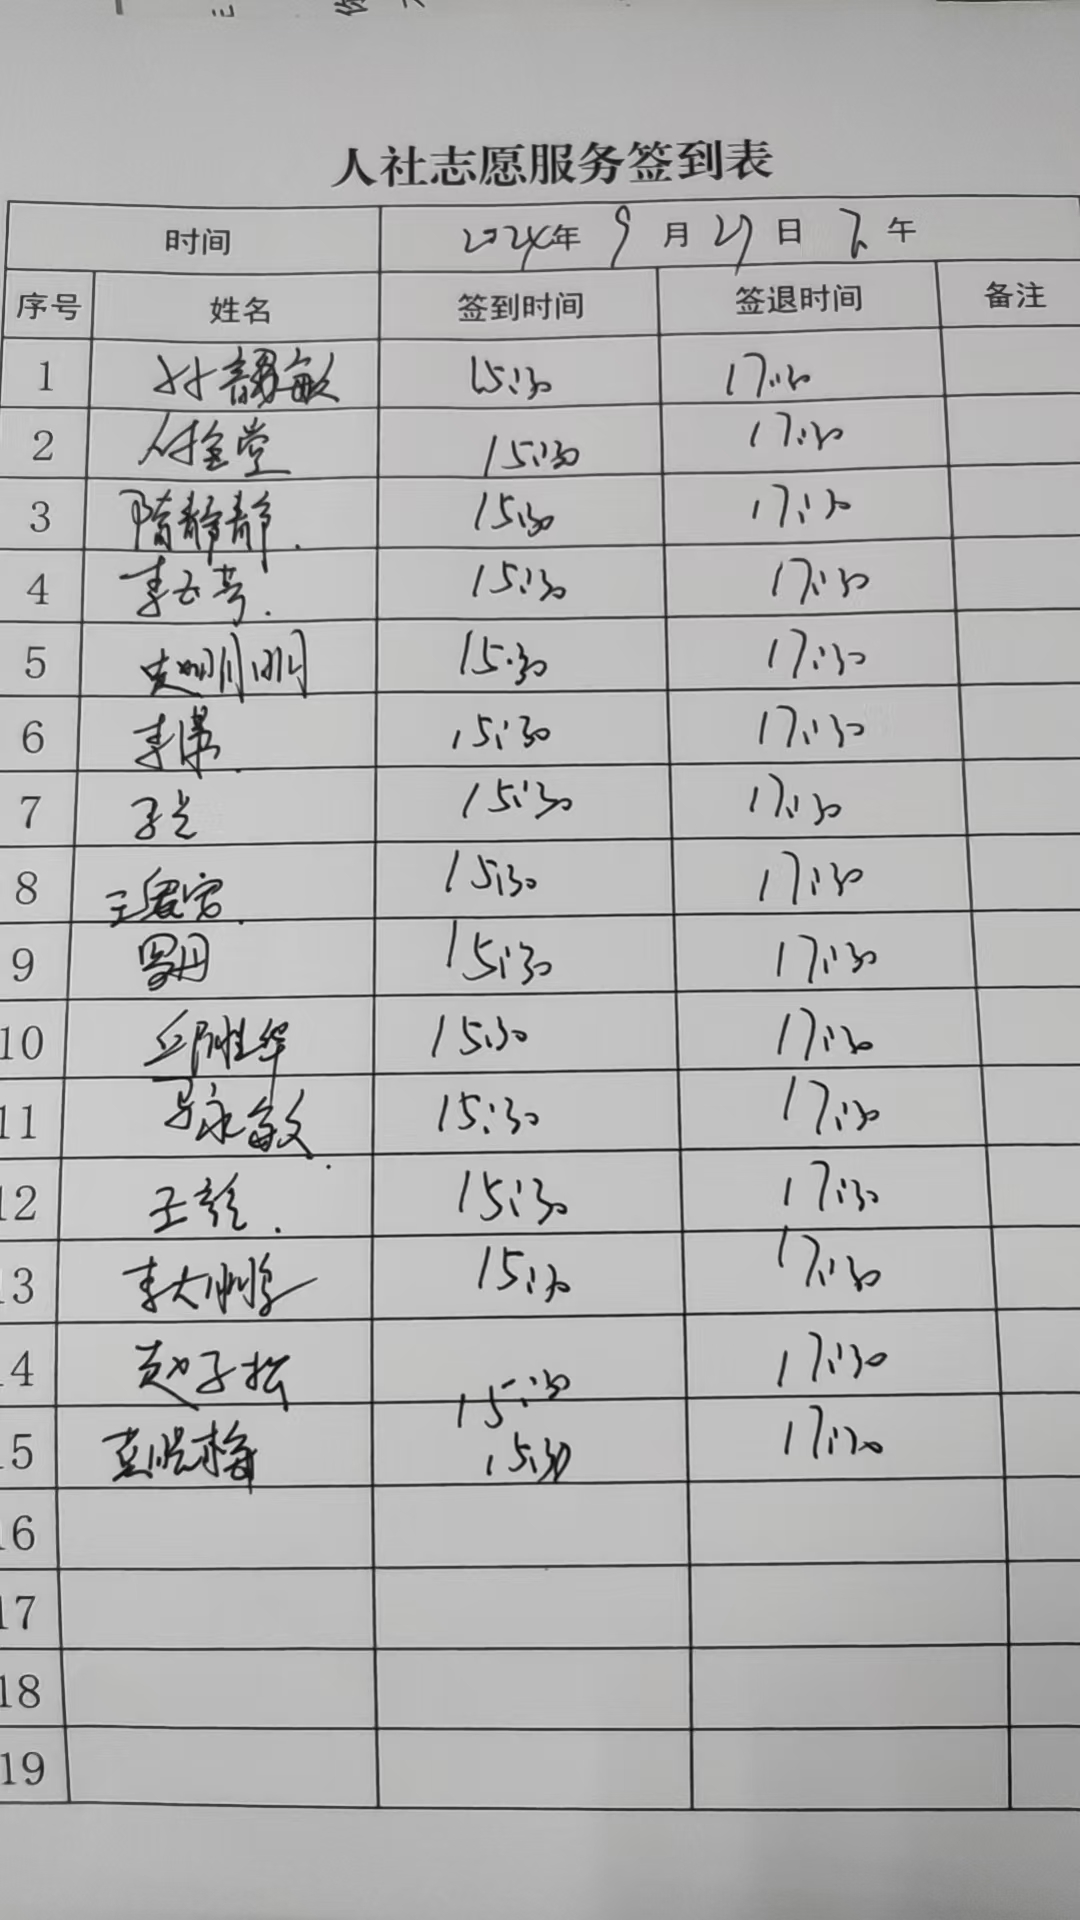 人社志愿服务签到表
时间 2024年 9月27日 下午
序号 姓名 签到时间 签退时间 备注
1 敏 15:30 17:30
2 付金堂 15:30 17:30
3 隋静静 15:30 17:30
4 李玉芳 15:30 17:30
5 史明明 15:30 17:30
6 李 15:30 17:30
7 15:30 17:30
8 王 15:30 17:30
9 罗丹 15:30 17:30
10 丘胜华 15:30 17:30
11 马永敏 15:30 17:30
12 王 15:30 17:30
13 李大鹏 15:30 17:30
14 赵子松 15:30 17:30
15 晓梅 15:30 17:30
16
17
18
19